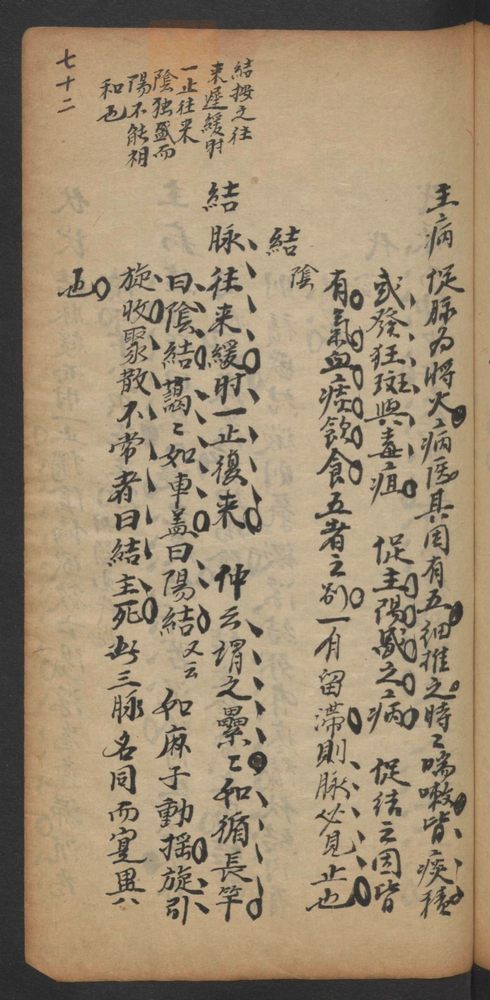 主病促脉为將火病医其因有五細推之時〻喘嗽皆痰積
或發狂斑與毒疽 促主陽盛之病 促結之因皆
有氣血痰飲食五者之别一有留滯則脉必見止也
結 陰
結脉往来緩时一止復来 仲云謂之纍〻如循長竿
曰陰結藹〻如車盖曰陽結又云 如麻子動摇旋引
旋收聚散不常者曰結主死此三脉名同而寔異
也
結按之往
来遲緩时
一止往来
陰独盛而
陽不能相
和也
七十二